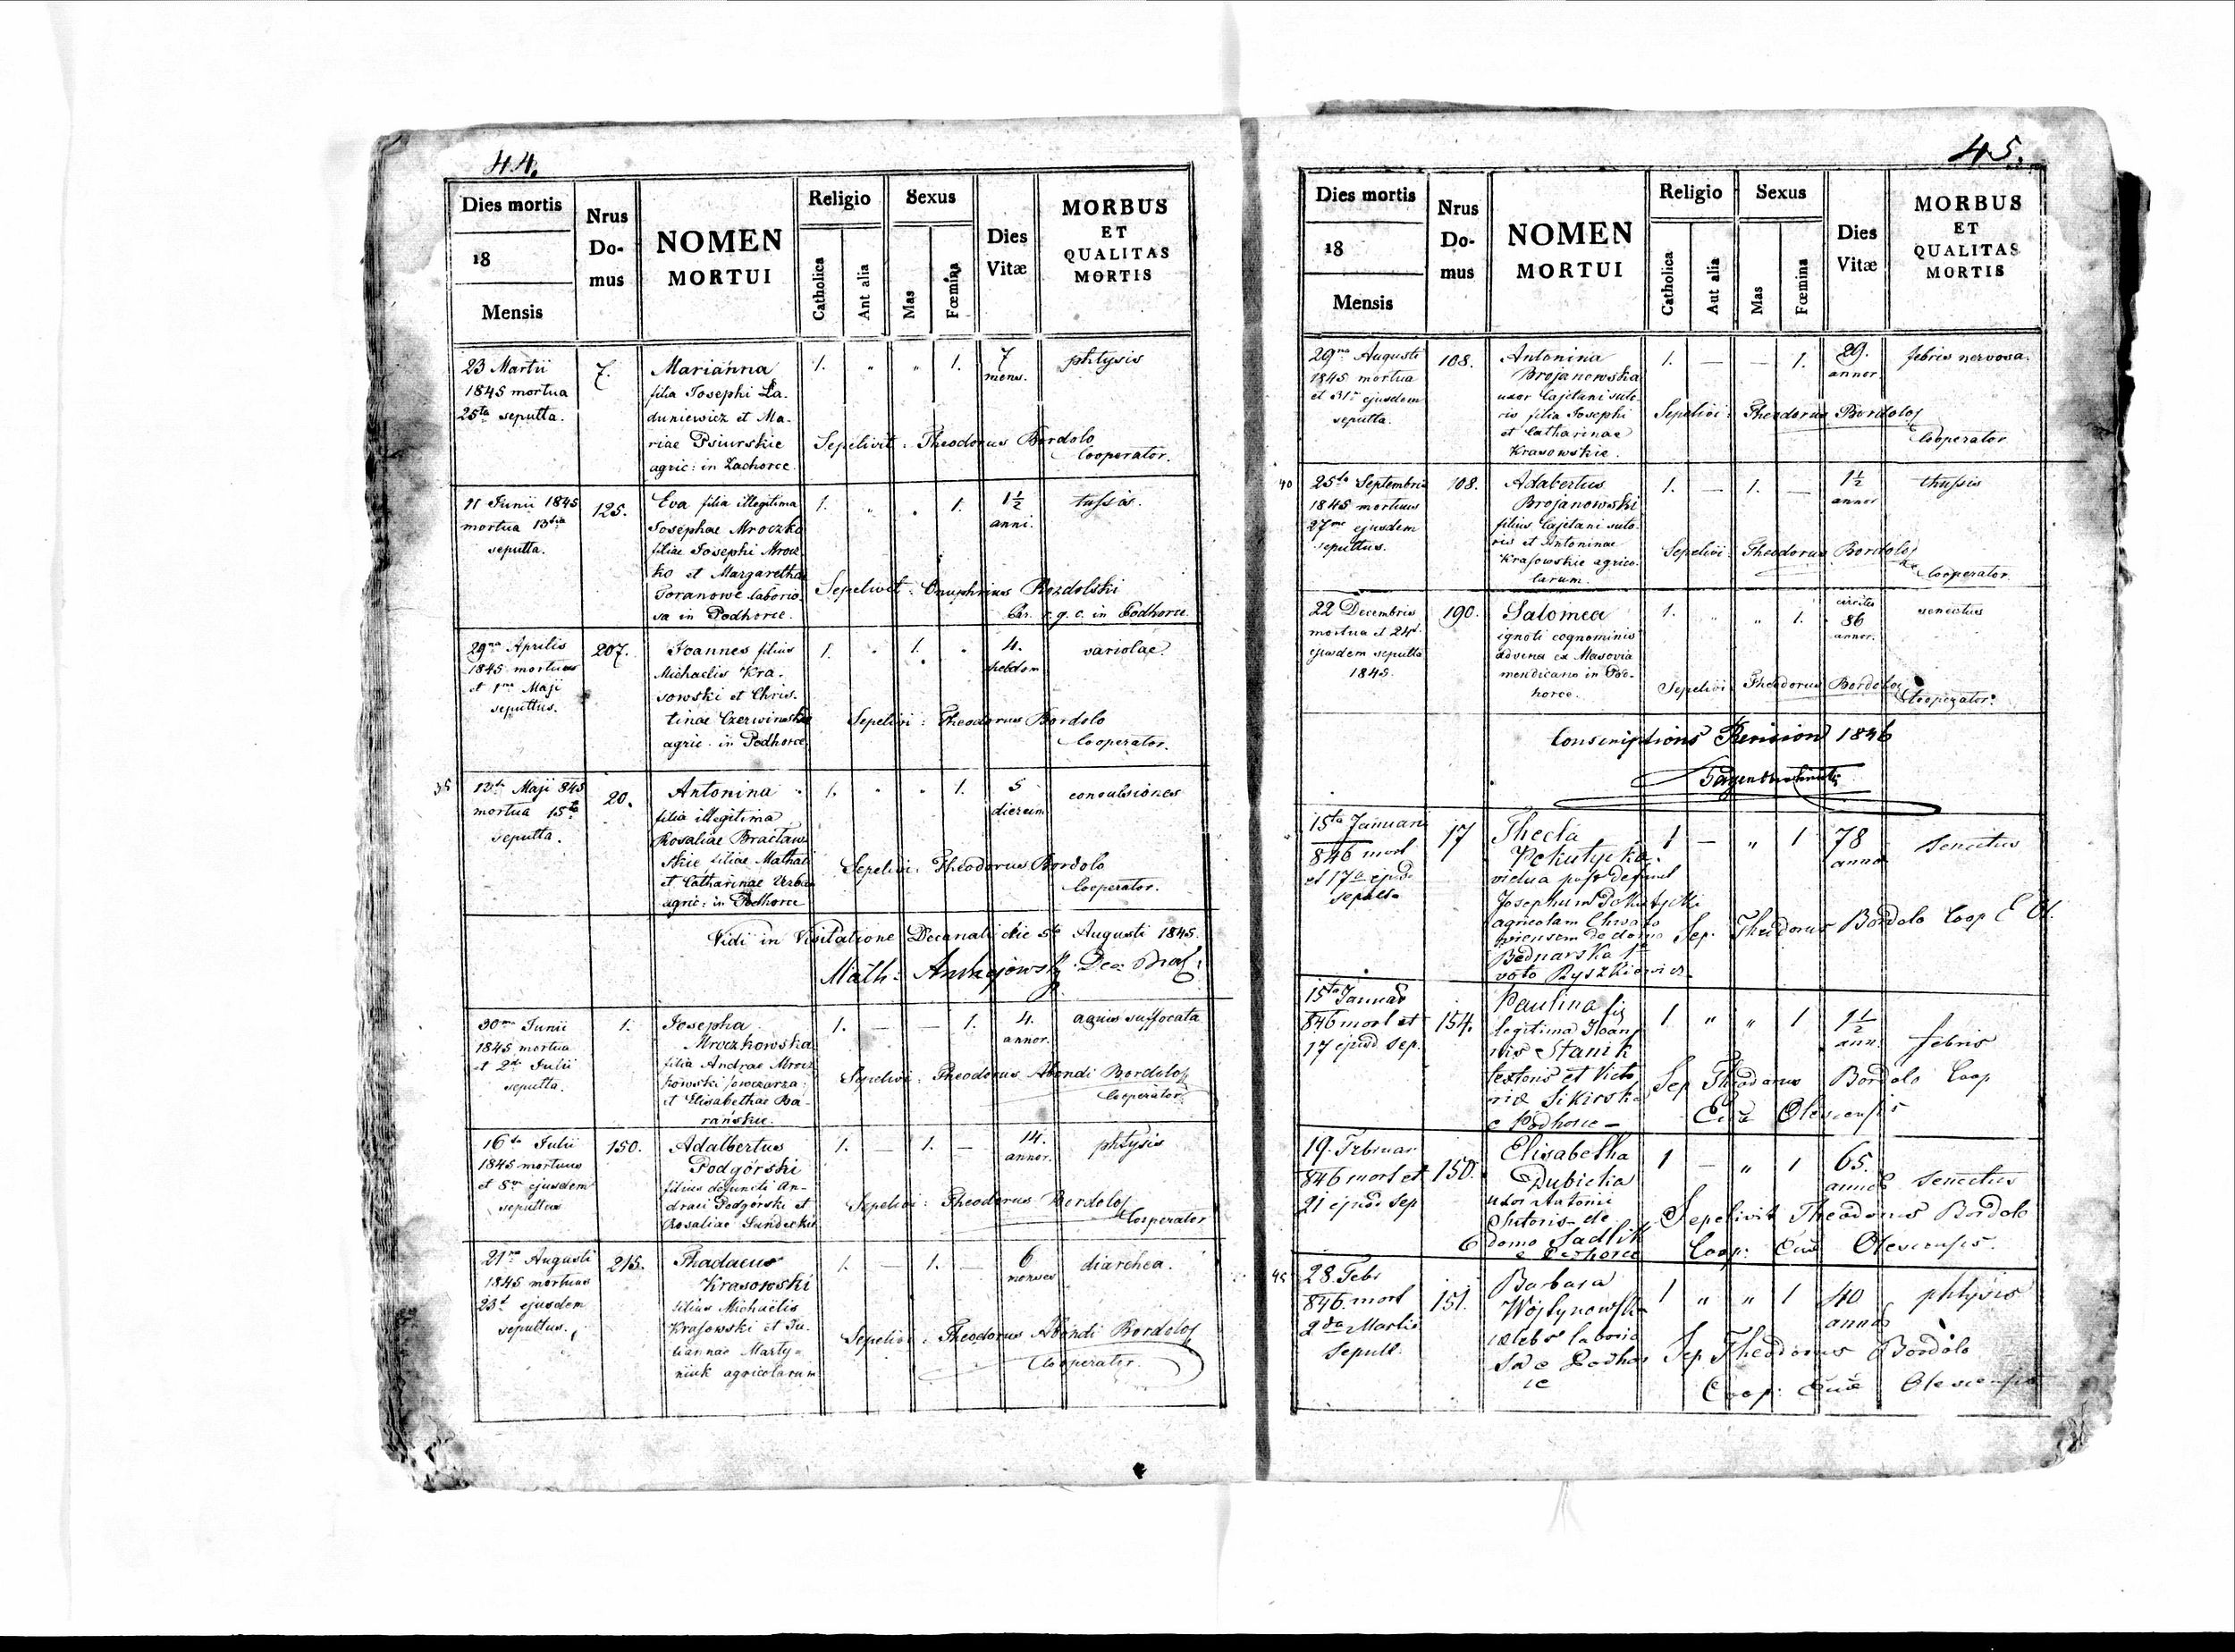 44.
Dies mortis
18
Mensis
Nrus
Do-
mus
NOMEN
MORTUI
Religio
Catholica
Ant alia
Sexus
Mas
Fœmina
Dies
Vitæ
MORBUS
ET
QUALITAS
MORTIS
23 Martii
1845 mortua
25ta sepulta.
7.
Marianna
filia Josephi La-
duniewicz et Ma-
riae Psiurskie
agric: in Zachorce.
1. " " 1.
7
mens.
phtysis
Sepelivit: Theodorus Bordolo
Cooperator.
11 Junii 1845
mortua 13tia
sepulta.
125.
Eva filia illegitima
Josephae Mroczko
filiae Josephi Mrocz
ko et Margarethae
Toranowe laborio
sa in Podhorce.
1. " " 1.
1 1/2
anni.
tussis.
Sepelivit: Onuphrius Rozdolski
Par. r. g. c. in Podhorce
29na Aprilis
1845 mortuus
et 1ma Maji
sepultus.
207.
Joannes filius
Michaelis Kra-
sowski et Chris-
tinae Czerwinskie
agric. in Podhorce
1. " 1. "
4.
hebdom
variolae.
Sepelivi: Theodorus Bordolo
Cooperator.
35
13tia Maji 845
mortua 15ta
sepulta.
20.
Antonina
filia illegitima
Rosaliae Bractaw
skie filiae Mathaei
et Catharinae
agric: in Podhorce
1. " " 1.
5
dierum
convulsiones
Sepelivi: Theodorus Bordolo
Cooperator.
Vidi in Visitatione Decanali die 5ta Augusti 1845.
Math: Andrzejowski Dec:
30ma Junii
1845 mortua
et 2da Julii
sepulta.
1.
Josepha
Mroczkowska
filia Andreae Mrocz
kowski
et Elisabethae Ba-
ranskie.
1. — — 1.
4.
annor.
aquis suffocata
Sepelivi: Theodorus Abondi Bordolo
Cooperator
16ta Julii
1845 mortuus
et 8va ejusdem
sepultus
150.
Adalbertus
Podgórski
filius defuncti An-
draei Podgórski et
Rosaliae Sundeckie
1. — 1. —
14.
annor.
phtysis
Sepelivi: Theodorus Bordolo
Cooperator
21ma Augusti
1845 mortuus
23t ejusdem
sepultus.
215.
Thadaeus
Krasowski
filius Michaëlis
Krasowski et Ju-
liannae Marty-
niuk agricolarum
1. — 1. —
6
menses
diarhea.
Sepelivi: Theodorus Abondi Bordolo
Cooperator.
45.
Dies mortis
18
Mensis
Nrus
Do-
mus
NOMEN
MORTUI
Religio
Catholica
Aut alia
Sexus
Mas
Fœmina
Dies
Vitæ
MORBUS
ET
QUALITAS
MORTIS
29na Augusti
1845 mortua
et 31a ejusdem
sepulta.
108.
Antonina
Brojanowska
uxor Cajetani suto-
ris filia Josephi
et Catharinae
Krasowskie.
1. — — 1.
29.
annor
febris nervosa.
Sepelivi: Theodorus Bordolo
Cooperator
40
25ta Septembris
1845 mortuus
27ma ejusdem
sepultus.
108.
Adabertus
Brojanowski
filius Cajetani suto-
ris et Antoninae
Krasowskie agrico-
larum.
1. — 1. —
1 1/2
annor
thussis
Sepelivi: Theodorus Bordolo
Cooperator
22 Decembris
mortua et 24t
ejusdem sepulta
1845.
190.
Salomea
ignoti cognominis
advena ex Masovia
mendicans in Pod-
horce.
1. " " 1.
circiter
86
annor.
senectus
Sepelivi: Theodorus Bordolo
Cooperator.
Conscriptions Revision 1846
15ta Januarii
846 mort
et 17a ejusd
sepulta
17
Thecla
Pokutycka
vidua post defunct
Josephum Pokutycki
agricolam
de domo
Bednarska 1o
voto Ryszkiewicz
1 — " 1
78
anno
senectus
Sep: Theodorus Bordolo Coop E Ol.
15ta Januar
846 mort et
17 ejusd. sep.
154.
Paulina fi
legitima Joan
nis Stanik
textoris et Victo
riæ Sikirska
e Podhorce —
1 " " 1
1 1/2
ann.
febris
Sep Theodorus Bordolo Coop
Olescensis
19. Februar
846 mort et
21 ejusd sep
150.
Elisabetha
Dubicka
uxor Antonii
Sutoris de
domo Sadlik
e Podhorce
1 — " 1
65.
annor
senectus
Sepelivit Theodorus Bordolo
Coop: Olescensis.
45
28. Febr
846. mort
2da Martii
Sepult.
151.
Barbara
Wojtynowska
cælebs laborio
sa e Podhor
ce
1 " " 1
40
annor
phtysis
Sep Theodorus Bordolo
Coop: Olescensis